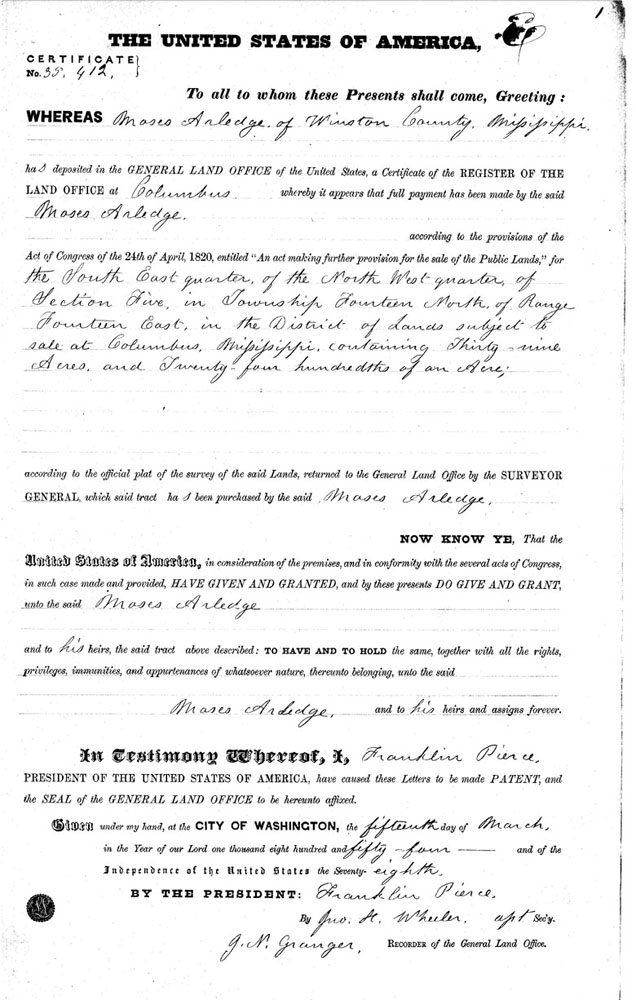 1
THE UNITED STATES OF AMERICA,
CERTIFICATE
No. 35,412,
To all to whom these Presents shall come, Greeting:
WHEREAS Moses Arledge, of Winston County, Mississippi,
has deposited in the GENERAL LAND OFFICE of the United States, a Certificate of the REGISTER OF THE
LAND OFFICE at Columbus whereby it appears that full payment has been made by the said
Moses Arledge,
according to the provisions of the
Act of Congress of the 24th of April, 1820, entitled "An act making further provision for the sale of the Public Lands," for
the South East quarter, of the North West quarter, of
Section Five, in Township Fourteen North, of Range
Fourteen East, in the District of Lands subject to
sale at Columbus, Mississippi, containing Thirty-nine
Acres, and Twenty-four hundredths of an Acre;
according to the official plat of the survey of the said Lands, returned to the General Land Office by the SURVEYOR
GENERAL, which said tract has been purchased by the said Moses Arledge,
NOW KNOW YE, That the
United States of America, in consideration of the premises, and in conformity with the several acts of Congress,
in such case made and provided, HAVE GIVEN AND GRANTED, and by these presents DO GIVE AND GRANT,
unto the said Moses Arledge
and to his heirs, the said tract above described: TO HAVE AND TO HOLD the same, together with all the rights,
privileges, immunities, and appurtenances of whatsoever nature, thereunto belonging, unto the said
Moses Arledge, and to his heirs and assigns forever.
In Testimony Whereof, I, Franklin Pierce,
PRESIDENT OF THE UNITED STATES OF AMERICA, have caused these Letters to be made PATENT, and
the SEAL of the GENERAL LAND OFFICE to be hereunto affixed.
Given under my hand, at the CITY OF WASHINGTON, the fifteenth day of March,
in the Year of our Lord one thousand eight hundred and fifty-four and of the
Independence of the United States the Seventy-eighth.
BY THE PRESIDENT: Franklin Pierce,
By Jno. H. Wheeler, apt Sec'y.
J. N. Granger, RECORDER of the General Land Office.